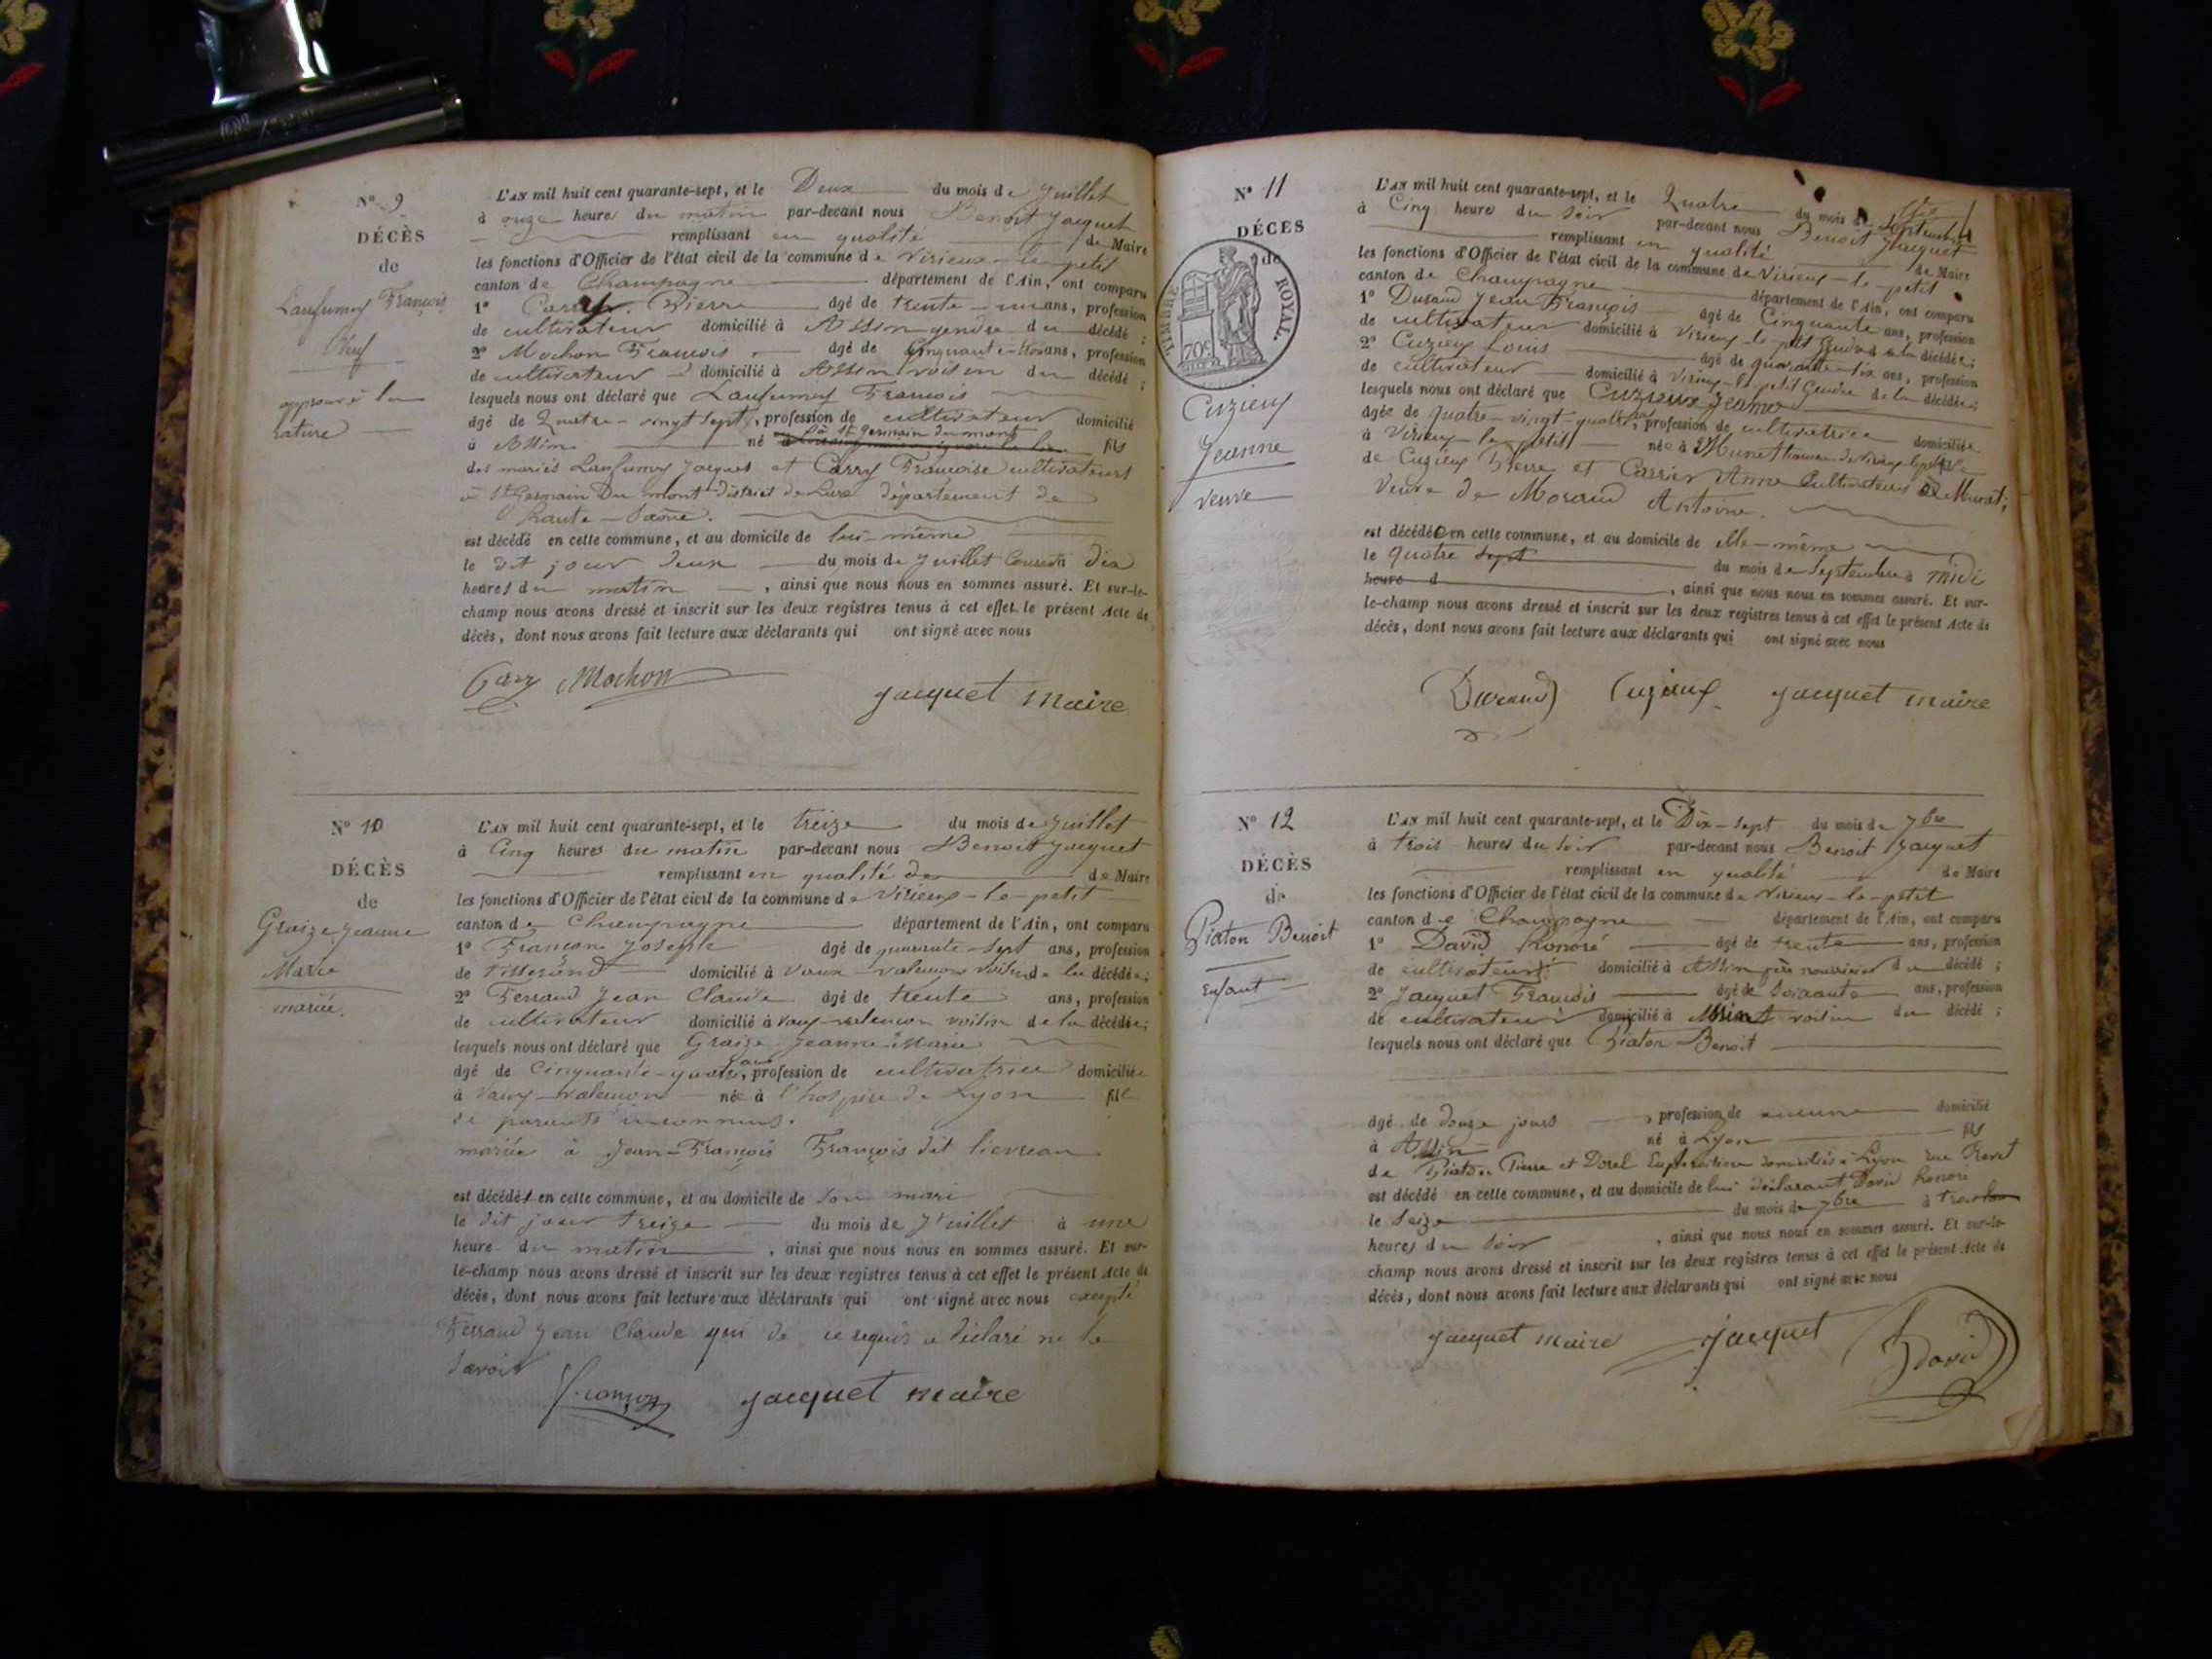 N° 9
DÉCÈS
de
Laufumey François
Veuf
approuvé la
rature
L'AN mil huit cent quarante-sept, et le Deux du mois de Juillet
à onze heures du matin par-devant nous Benoit Jacquet
remplissant en qualité de Maire
les fonctions d'Officier de l'état civil de la commune de Virieux-le-petit
canton de Champagne département de l'Ain, ont comparu
1° Carry Pierre âgé de trente-un ans, profession
de cultivateur domicilié à Assin gendre du décédé ;
2° Mochon François âgé de Cinquante-trois ans, profession
de cultivateur domicilié à Assin voisin du décédé ;
lesquels nous ont déclaré que Laufumey François
âgé de Quatre-vingt sept, profession de cultivateur domicilié
à Assin né à St Germain du mont fils
des mariés Laufumey Jacques et Carry Françoise cultivateurs
à St Germain Du mont District de Lure département de
haute-Saône.
est décédé en cette commune, et au domicile de lui-même
le dit jour deux du mois de Juillet Courant à dix
heures du matin , ainsi que nous nous en sommes assuré. Et sur-le-
champ nous avons dressé et inscrit sur les deux registres tenus à cet effet le présent Acte de
décès, dont nous avons fait lecture aux déclarants qui ont signé avec nous
Carry Mochon Jacquet Maire
N° 10
DÉCÈS
de
Graize Jeanne
Marie
mariée.
L'AN mil huit cent quarante-sept, et le treize du mois de Juillet
à Cinq heures du matin par-devant nous Benoit Jacquet
remplissant en qualité de de Maire
les fonctions d'Officier de l'état civil de la commune de Virieux-le-petit
canton de Champagne département de l'Ain, ont comparu
1° Françon Joseph âgé de quarante-sept ans, profession
de Tisserand domicilié à Vaux-valencon voisin de la décédée;
2° Ferraud Jean Claude âgé de trente ans, profession
de cultivateur domicilié à Vaux-valencon voisin de la décédée;
lesquels nous ont déclaré que Graize Jeanne Marie
âgé de Cinquante-quatre ans, profession de cultivatrice domiciliée
à Vaux-valencon née à l'hospice de Lyon fille
de parents inconnus.
mariée à Jean-François François dit
est décédée en cette commune, et au domicile de Son mari
le dit jour treize du mois de Juillet à une
heure du matin , ainsi que nous nous en sommes assuré. Et sur-
le-champ nous avons dressé et inscrit sur les deux registres tenus à cet effet le présent Acte de
décès, dont nous avons fait lecture aux déclarants qui ont signé avec nous excepté
Ferraud Jean Claude qui de ce requis a déclaré ne le
Savoir
Françon Jacquet maire
N° 11
DÉCÈS
de
TIMBRE ROYAL.
70c
Cuzieux
Jeanne
veuve
L'AN mil huit cent quarante-sept, et le Quatre du mois de Septembre
à Cinq heures du Soir par-devant nous Benoit Jacquet
remplissant en qualité de Maire
les fonctions d'Officier de l'état civil de la commune de Virieux-le-petit
canton de Champagne département de l'Ain, ont comparu
1° Durand Jean François âgé de Cinquante ans, profession
de cultivateur domicilié à Virieux-le-petit Gendre de la décédée;
2° Cuzieux Louis âgé de quarante-six ans, profession
de cultivateur domicilié à Virieux-le-petit Gendre de la décédée;
lesquels nous ont déclaré que Cuzieux Jeanne
âgée de quatre-vingt quatre ans, profession de cultivatrice domiciliée
à Virieux-le-petit née à Munet hameau de Virieux-le-petit fille
de Cuzieux Pierre et Carrier Anne Cultivateurs à Munet;
Veuve de Morand Antoine.
est décédée en cette commune, et au domicile de elle-même
le quatre Sept du mois de Septembre à midi
heure d , ainsi que nous nous en sommes assuré. Et sur-
le-champ nous avons dressé et inscrit sur les deux registres tenus à cet effet le présent Acte de
décès, dont nous avons fait lecture aux déclarants qui ont signé avec nous
Durand Cuzieux Jacquet maire
N° 12
DÉCÈS
de
Piaton Benoit
Enfant
L'AN mil huit cent quarante-sept, et le Dix-Sept du mois de 7bre
à trois heures du Soir par-devant nous Benoit Jacquet
remplissant en qualité de Maire
les fonctions d'Officier de l'état civil de la commune de Virieux-le-petit
canton de Champagne département de l'Ain, ont comparu
1° David honoré âgé de trente ans, profession
de cultivateur domicilié à Assin père nourricier du décédé ;
2° Jacquet François âgé de Soixante ans, profession
de cultivateur domicilié à Assin voisin du décédé ;
lesquels nous ont déclaré que Piaton Benoit
âgé de douze jours , profession de aucune domicilié
à Assin né à Lyon fils
de Piaton Pierre et Dorel domiciliés à Lyon rue
est décédé en cette commune, et au domicile de lui déclarant David honoré
le Seize du mois de 7bre à trois
heures du Soir , ainsi que nous nous en sommes assuré. Et sur-le-
champ nous avons dressé et inscrit sur les deux registres tenus à cet effet le présent Acte de
décès, dont nous avons fait lecture aux déclarants qui ont signé avec nous
Jacquet maire Jacquet David